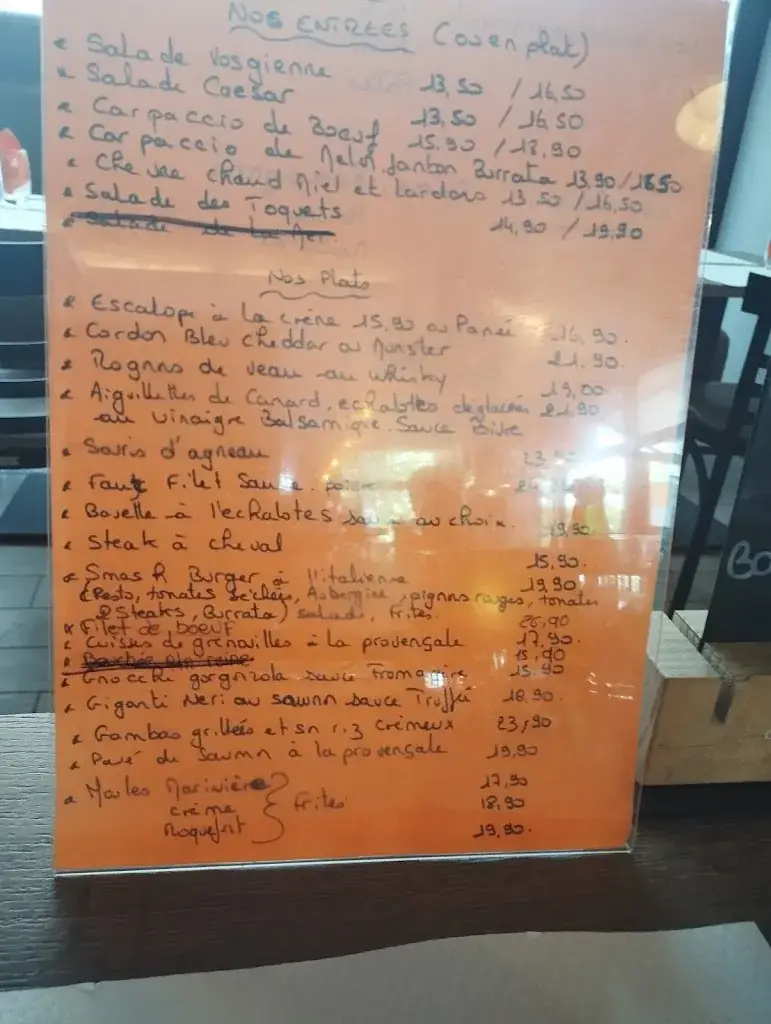 Nos ENTREES (ou en plat)
Salade Vosgienne 13,50 / 16,50
Salade Caesar 13,50 / 16,50
Carpaccio de Boeuf 15.90 / 18,90
Carpaccio de Melon Janbon Burrata 13,90/16.50
Chevre chaud Miel et Lardons 13 50 / 16,50
Salade des Toquets 14,90 / 19,90
Salade de La Mer
Nos Plats
Escalope à La crème 15,90 ou Panée 16,90.
Cordon Bleu cheddar ou Munster 21.90.
Rognons de veau au Whisky 19,00
Aiguillettes de Canard, echalottes déglacées 21.90
au Vinaigre Balsamique. Sauce Poivre
Souris d'agneau
Faux Filet Sauce poivre
Bavette à l'echalotes sauce au choix. 19,90
Steak à cheval 15,90.
Smash Burger à l'italienne 19,90
(Pesto, tomates séchées, Aubergine, pignons rouges, tomates
2 Steaks, Burrata) salade, Frites.
Filet de boeuf 26,90
Cuisses de grenouilles à La provençale 17.90.
Bouchée à la reine 15.90
Gnocchi gorgonzola sauce Fromagère 15.90
Giganti Neri au saumon sauce Truffée 18,90.
Gambas grillées et son riz crémeux 23,90
Pavé de Saumon à la provençale 19,90
Moules Marinière 17,90
crème Frites 18,90
Roquefort 19,90.
Bo